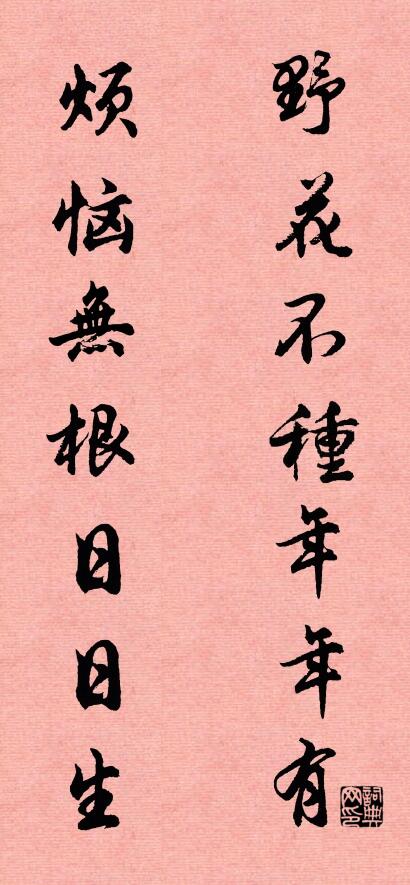 野花不種年年有
煩惱無根日日生
詞典网印